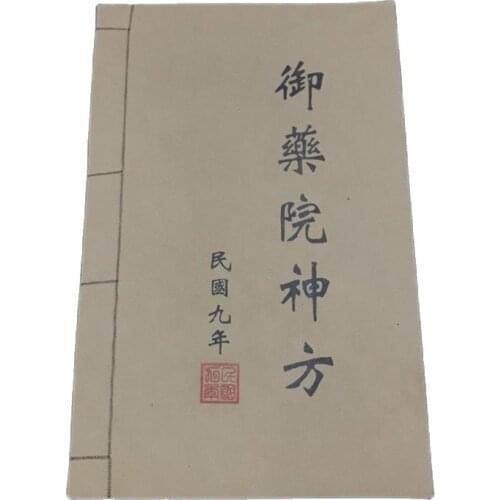 御藥院神方
民國九年